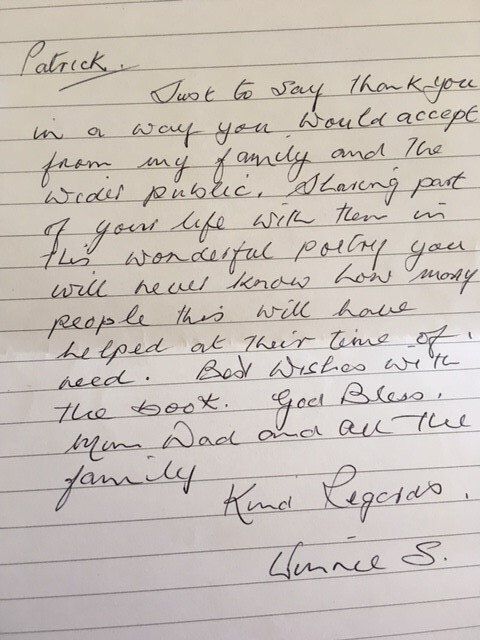 Patrick.
Just to say thank you
in a way you would accept
from my family and the
wider public. Sharing part
of your life with them in
this wonderful poetry you
will never know how many
people this will have
helped at their time of
need. Best Wishes with
the book. God Bless.
Mum Dad and all the
family
Kind Regards.
Winnie S.